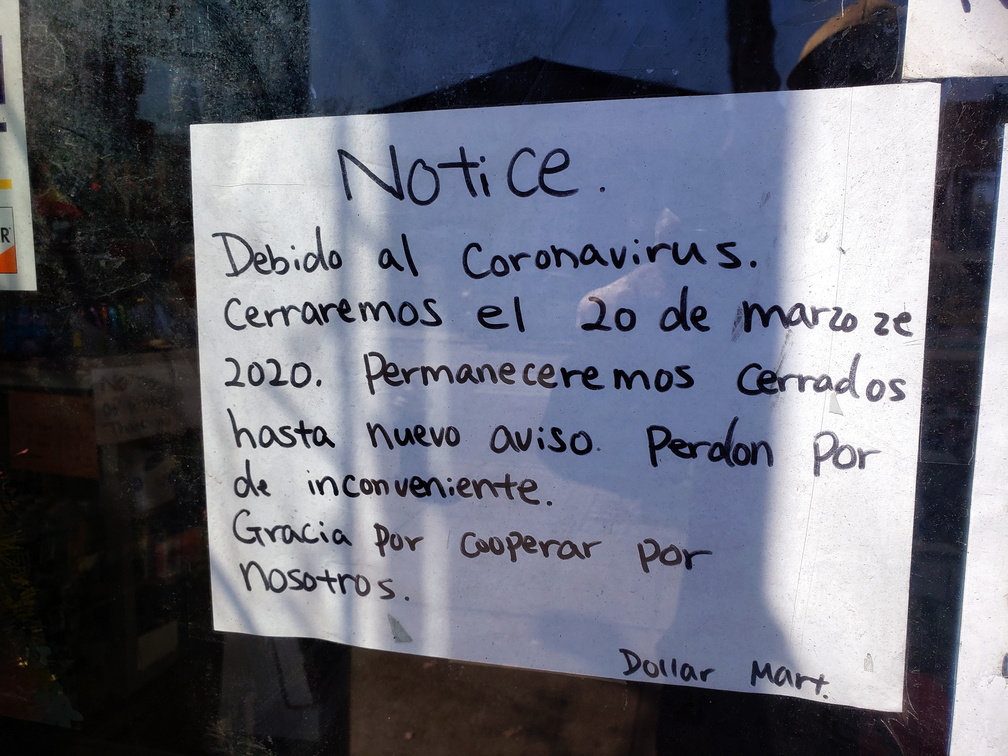 Notice.
Debido al Coronavirus.
Cerraremos el 20 de marzo ze
2020. Permaneceremos cerrados
hasta nuevo aviso. Perdon Por
de inconveniente.
Gracia por cooperar por
nosotros.
Dollar Mart.
R
No